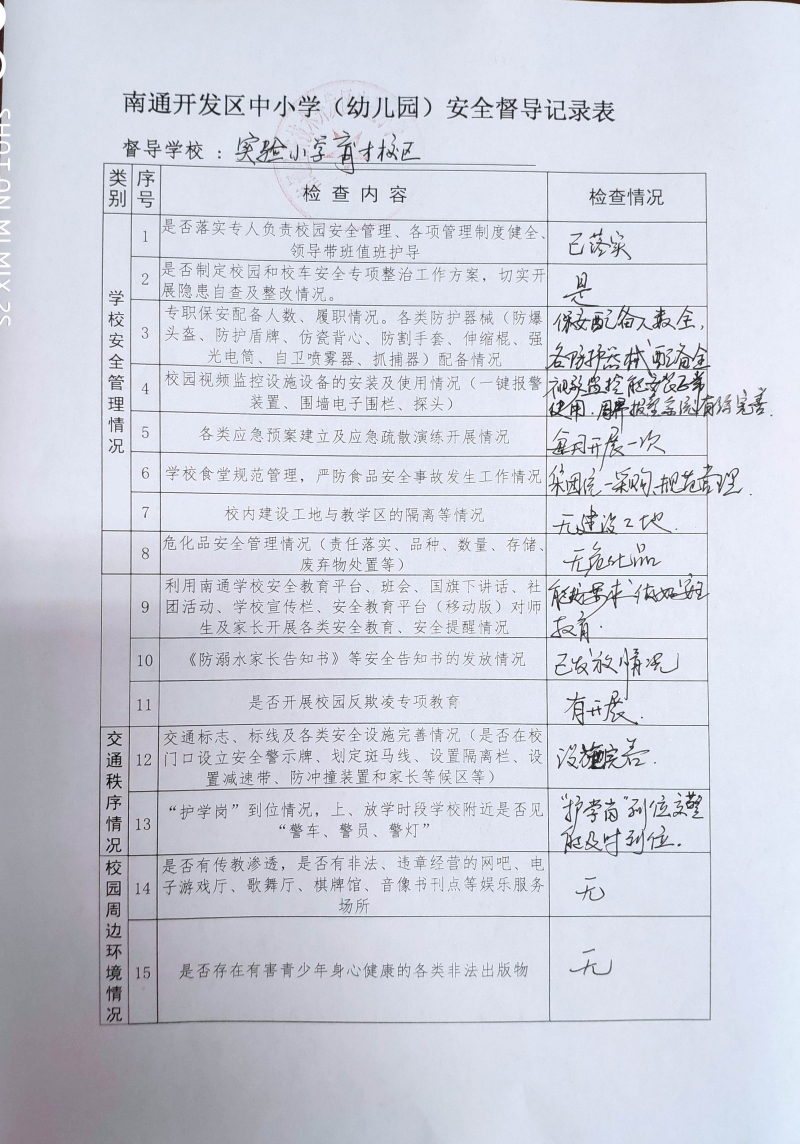 南通开发区中小学（幼儿园）安全督导记录表
督导学校：实验小学育才校区
类别 序号 检查内容 检查情况
学校安全管理情况
1 是否落实专人负责校园安全管理、各项管理制度健全、
领导带班值班护导
已落实
2 是否制定校园和校车安全专项整治工作方案，切实开
展隐患自查及整改情况。
是
3 专职保安配备人数、履职情况。各类防护器械（防爆
头盔、防护盾牌、仿瓷背心、防割手套、伸缩棍、强
光电筒、自卫喷雾器、抓捕器）配备情况
保安配备人数全，
各防护器械配备全
4 校园视频监控设施设备的安装及使用情况（一键报警
装置、围墙电子围栏、探头）
视频监控能安装正常
使用，周界报警系统有待完善.
5 各类应急预案建立及应急疏散演练开展情况
每月开展一次
6 学校食堂规范管理，严防食品安全事故发生工作情况
集团统一采购、规范管理.
7 校内建设工地与教学区的隔离等情况
无建设工地.
8 危化品安全管理情况（责任落实、品种、数量、存储、
废弃物处置等）
无危化品
9 利用南通学校安全教育平台、班会、国旗下讲话、社
团活动、学校宣传栏、安全教育平台（移动版）对师
生及家长开展各类安全教育、安全提醒情况
能按要求做好安全
教育.
10 《防溺水家长告知书》等安全告知书的发放情况
已发放情况
11 是否开展校园反欺凌专项教育
有开展.
交通秩序情况
12 交通标志、标线及各类安全设施完善情况（是否在校
门口设立安全警示牌、划定斑马线、设置隔离栏、设
置减速带、防冲撞装置和家长等候区等）
设施完善.
13 “护学岗”到位情况，上、放学时段学校附近是否见
“警车、警员、警灯”
“护学岗”到位交警
能及时到位.
校园周边环境情况
14 是否有传教渗透，是否有非法、违章经营的网吧、电
子游戏厅、歌舞厅、棋牌馆、音像书刊点等娱乐服务
场所
无
15 是否存在有害青少年身心健康的各类非法出版物
无
SHOT ON MI MIX 2S